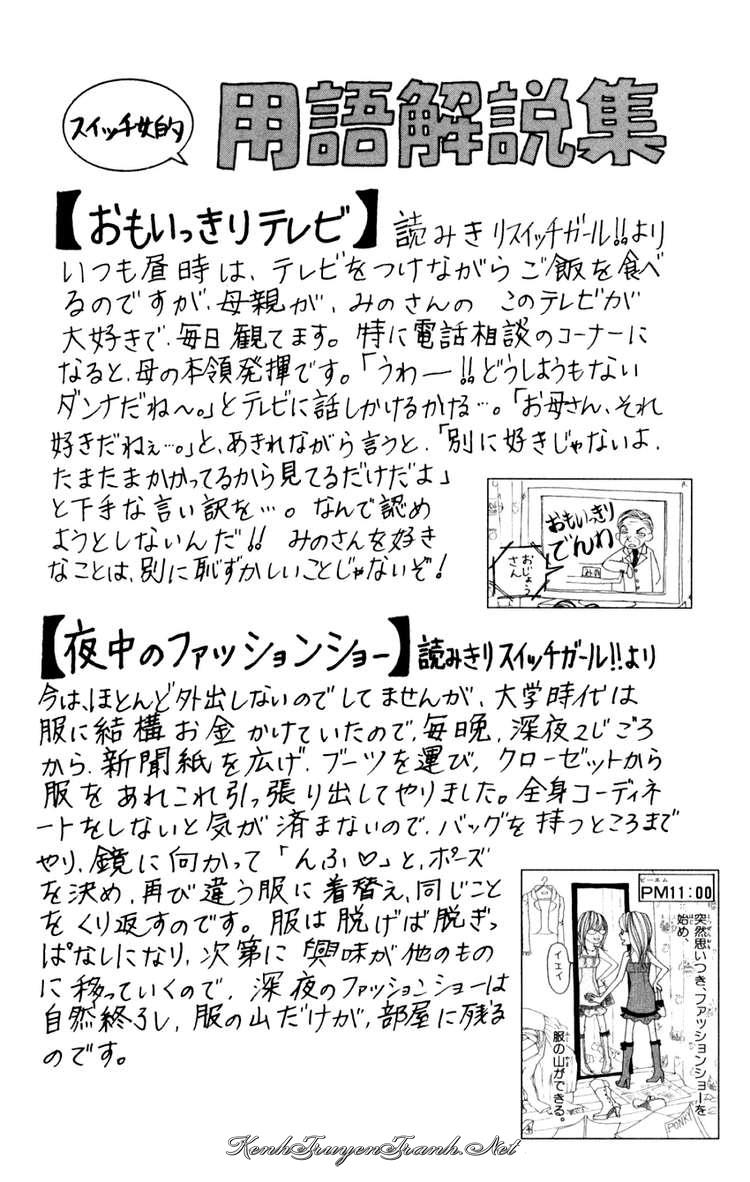 スイッチ女的
用語解説集
【おもいっきりテレビ】読みきりスイッチガール!!より
いつも昼時は、テレビをつけながらご飯を食べ
るのですが、母親が、みのさんの このテレビが
大好きで、毎日観てます。特に電話相談のコーナーに
なると、母の本領発揮です。「うわー!!どうしようもない
ダンナだね〜。」とテレビに話しかけるかける…。「お母さん、それ
好きだねぇ…。」と、あきれながら言うと、「別に好きじゃないよ、
たまたまかかってるから見てるだけだよ」
と下手な言い訳を…。なんで認め
ようとしないんだ!! みのさんを好き
なことは、別に恥ずかしいことじゃないぞ!
おもいっきり
でんわ
おじょう
さん
【夜中のファッションショー】読みきりスイッチガール!!より
今は、ほとんど外出しないのでしてませんが、大学時代は
服に結構お金かけていたので、毎晩、深夜2じごろ
から、新聞紙を広げ、ブーツを運び、クローゼットから
服をあれこれ引っ張り出してやりました。全身コーディネ
ートをしないと気が済まないので、バッグを持つところまで
やり、鏡に向かって「んふ♡」と、ポーズ
を決め、再び違う服に着替え、同じこと
をくり返すのです。服は脱げば脱ぎっ
ぱなしになり、次第に興味が他のもの
に移っていくので、深夜のファッションショーは
自然終了し、服の山だけが、部屋に残る
のです。
ピーエム
PM11:00
突然思いつき、ファッションショーを
始め、
イエイ
服の山ができる。
PONKY
KenhTruyenTranh.Net